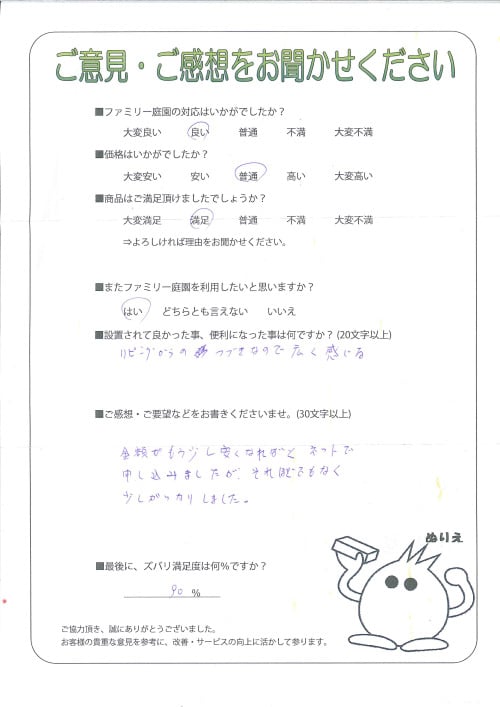 ご意見・ご感想をお聞かせください
■ファミリー庭園の対応はいかがでしたか？
大変良い 良い 普通 不満 大変不満
■価格はいかがでしたか？
大変安い 安い 普通 高い 大変高い
■商品はご満足頂けましたでしょうか？
大変満足 満足 普通 不満 大変不満
⇒よろしければ理由をお聞かせください。
■またファミリー庭園を利用したいと思いますか？
はい どちらとも言えない いいえ
■設置されて良かった事、便利になった事は何ですか？(20文字以上)
リビングからの つづきなので広く感じる
■ご感想・ご要望などをお書きくださいませ。(30文字以上)
金額がもう少し安くなればと ネットで
申し込みましたが、それほどでもなく
少しがっかりしました。
ぬりえ
■最後に、ズバリ満足度は何％ですか？
90 %
ご協力頂き、誠にありがとうございました。
お客様の貴重な意見を参考に、改善・サービスの向上に活かして参ります。